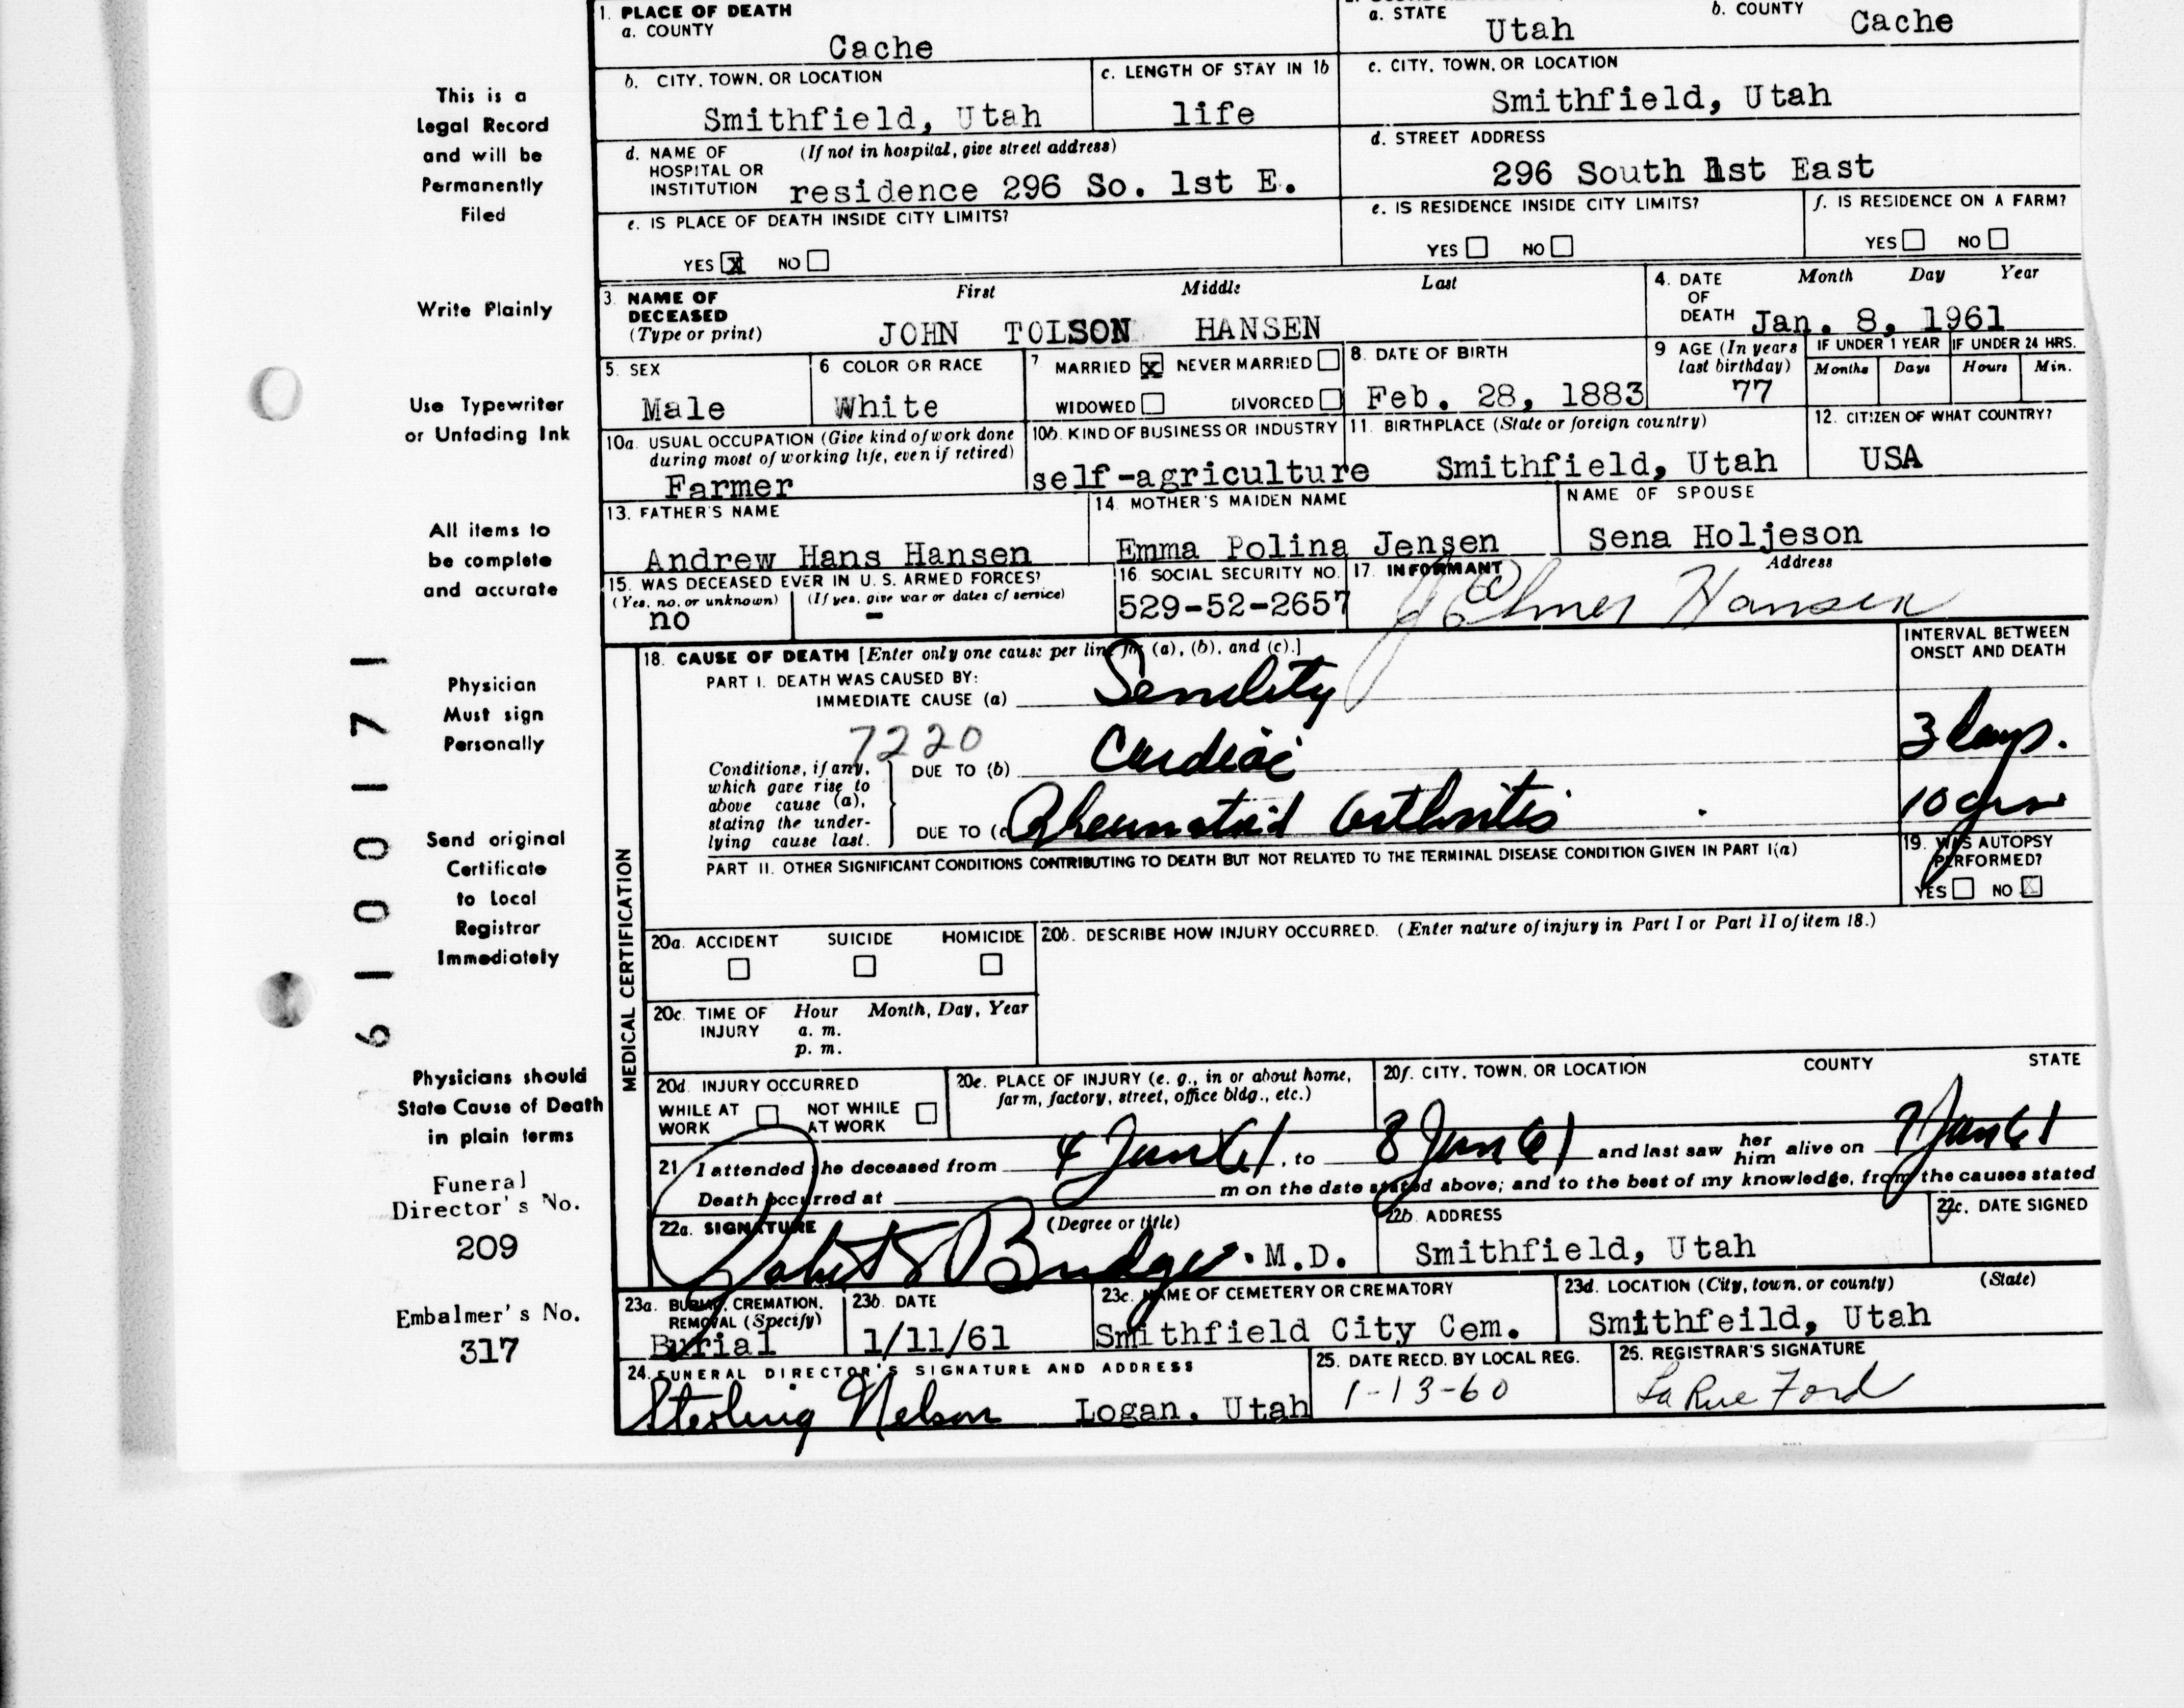 1. PLACE OF DEATH
a. COUNTY
Cache
a. STATE
Utah
b. COUNTY
Cache
b. CITY, TOWN, OR LOCATION
Smithfield, Utah
c. LENGTH OF STAY IN 1b
life
c. CITY, TOWN, OR LOCATION
Smithfield, Utah
d. NAME OF HOSPITAL OR INSTITUTION
(If not in hospital, give street address)
residence 296 So. 1st E.
d. STREET ADDRESS
296 South 1st East
e. IS PLACE OF DEATH INSIDE CITY LIMITS?
YES X NO
e. IS RESIDENCE INSIDE CITY LIMITS?
YES NO
f. IS RESIDENCE ON A FARM?
YES NO
3. NAME OF DECEASED
(Type or print)
First Middle Last
JOHN TOLSON HANSEN
4. DATE OF DEATH
Month Day Year
Jan. 8, 1961
5. SEX
Male
6 COLOR OR RACE
White
7 MARRIED X NEVER MARRIED
WIDOWED DIVORCED
8. DATE OF BIRTH
Feb. 28, 1883
9 AGE (In years last birthday)
77
IF UNDER 1 YEAR
Months Days
IF UNDER 24 HRS.
Hours Min.
10a. USUAL OCCUPATION (Give kind of work done during most of working life, even if retired)
Farmer
10b. KIND OF BUSINESS OR INDUSTRY
self-agriculture
11. BIRTHPLACE (State or foreign country)
Smithfield, Utah
12. CITIZEN OF WHAT COUNTRY?
USA
13. FATHER'S NAME
Andrew Hans Hansen
14. MOTHER'S MAIDEN NAME
Emma Polina Jensen
NAME OF SPOUSE
Sena Holjeson
15. WAS DECEASED EVER IN U. S. ARMED FORCES?
(Yes, no, or unknown) (If yes, give war or dates of service)
no -
16. SOCIAL SECURITY NO.
529-52-2657
17. INFORMANT Address
J Elmer Hansen
MEDICAL CERTIFICATION
18. CAUSE OF DEATH [Enter only one cause per line for (a), (b), and (c).]
INTERVAL BETWEEN ONSET AND DEATH
PART I. DEATH WAS CAUSED BY:
IMMEDIATE CAUSE (a) Senility
7220
Conditions, if any, which gave rise to above cause (a), stating the underlying cause last.
DUE TO (b) Cardiac
3 days.
DUE TO (c Rheumatoid Arthritis
10 yrs
PART II. OTHER SIGNIFICANT CONDITIONS CONTRIBUTING TO DEATH BUT NOT RELATED TO THE TERMINAL DISEASE CONDITION GIVEN IN PART I(a)
19. WAS AUTOPSY PERFORMED?
YES NO X
20a. ACCIDENT SUICIDE HOMICIDE
20b. DESCRIBE HOW INJURY OCCURRED. (Enter nature of injury in Part I or Part II of item 18.)
20c. TIME OF INJURY
Hour Month, Day, Year
a. m.
p. m.
20d. INJURY OCCURRED
WHILE AT WORK NOT WHILE AT WORK
20e. PLACE OF INJURY (e. g., in or about home, farm, factory, street, office bldg., etc.)
20f. CITY, TOWN, OR LOCATION COUNTY STATE
21. I attended the deceased from 4 Jan 61, to 8 Jan 61 and last saw her him alive on 7 Jan 61
Death occurred at m on the date stated above; and to the best of my knowledge, from the causes stated
22a. SIGNATURE (Degree or title)
Budge. M.D.
22b. ADDRESS
Smithfield, Utah
22c. DATE SIGNED
23a. BURIAL, CREMATION, REMOVAL (Specify)
Burial
23b. DATE
1/11/61
23c. NAME OF CEMETERY OR CREMATORY
Smithfield City Cem.
23d. LOCATION (City, town, or county) (State)
Smithfeild, Utah
24. FUNERAL DIRECTOR'S SIGNATURE AND ADDRESS
Sterling Nelson Logan, Utah
25. DATE RECD. BY LOCAL REG.
1-13-60
25. REGISTRAR'S SIGNATURE
La Rue Ford
This is a
Legal Record
and will be
Permanently
Filed
Write Plainly
Use Typewriter
or Unfading Ink
All items to
be complete
and accurate
Physician
Must sign
Personally
Send original
Certificate
to Local
Registrar
Immediately
Physicians should
State Cause of Death
in plain terms
Funeral
Director's No.
209
Embalmer's No.
317
61 00171